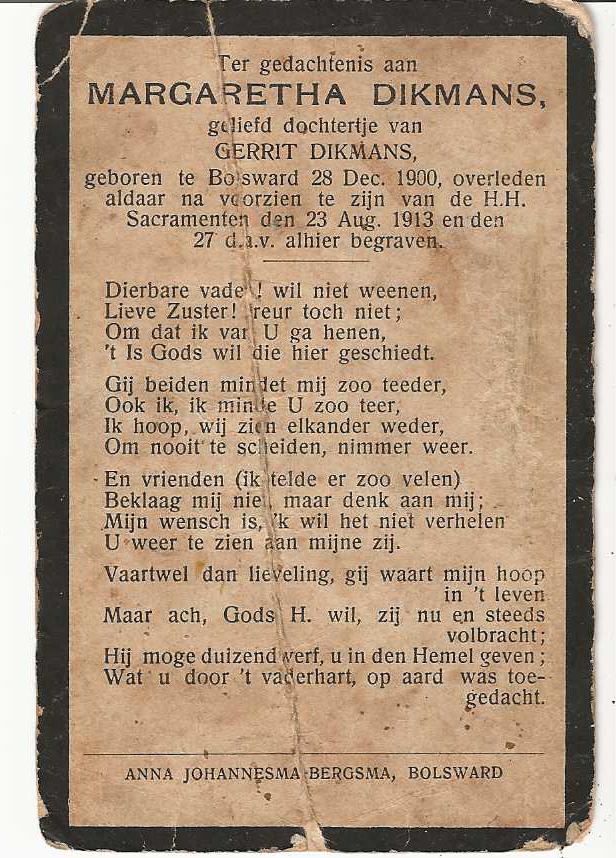 Ter gedachtenis aan
MARGARETHA DIKMANS,
geliefd dochtertje van
GERRIT DIKMANS,
geboren te Bolsward 28 Dec. 1900, overleden
aldaar na voorzien te zijn van de H.H.
Sacramenten den 23 Aug. 1913 en den
27 d.a.v. alhier begraven.
Dierbare vader! wil niet weenen,
Lieve Zuster! treur toch niet;
Om dat ik van U ga henen,
't Is Gods wil die hier geschiedt.
Gij beiden mindet mij zoo teeder,
Ook ik, ik minde U zoo teer,
Ik hoop, wij zien elkander weder,
Om nooit te scheiden, nimmer weer.
En vrienden (ik telde er zoo velen)
Beklaag mij niet, maar denk aan mij;
Mijn wensch is, 'k wil het niet verhelen
U weer te zien aan mijne zij.
Vaartwel dan lieveling, gij waart mijn hoop
in 't leven
Maar ach, Gods H. wil, zij nu en steeds
volbracht;
Hij moge duizendwerf, u in den Hemel geven;
Wat u door 't vaderhart, op aard was toe-
gedacht.
ANNA JOHANNESMA-BERGSMA, BOLSWARD